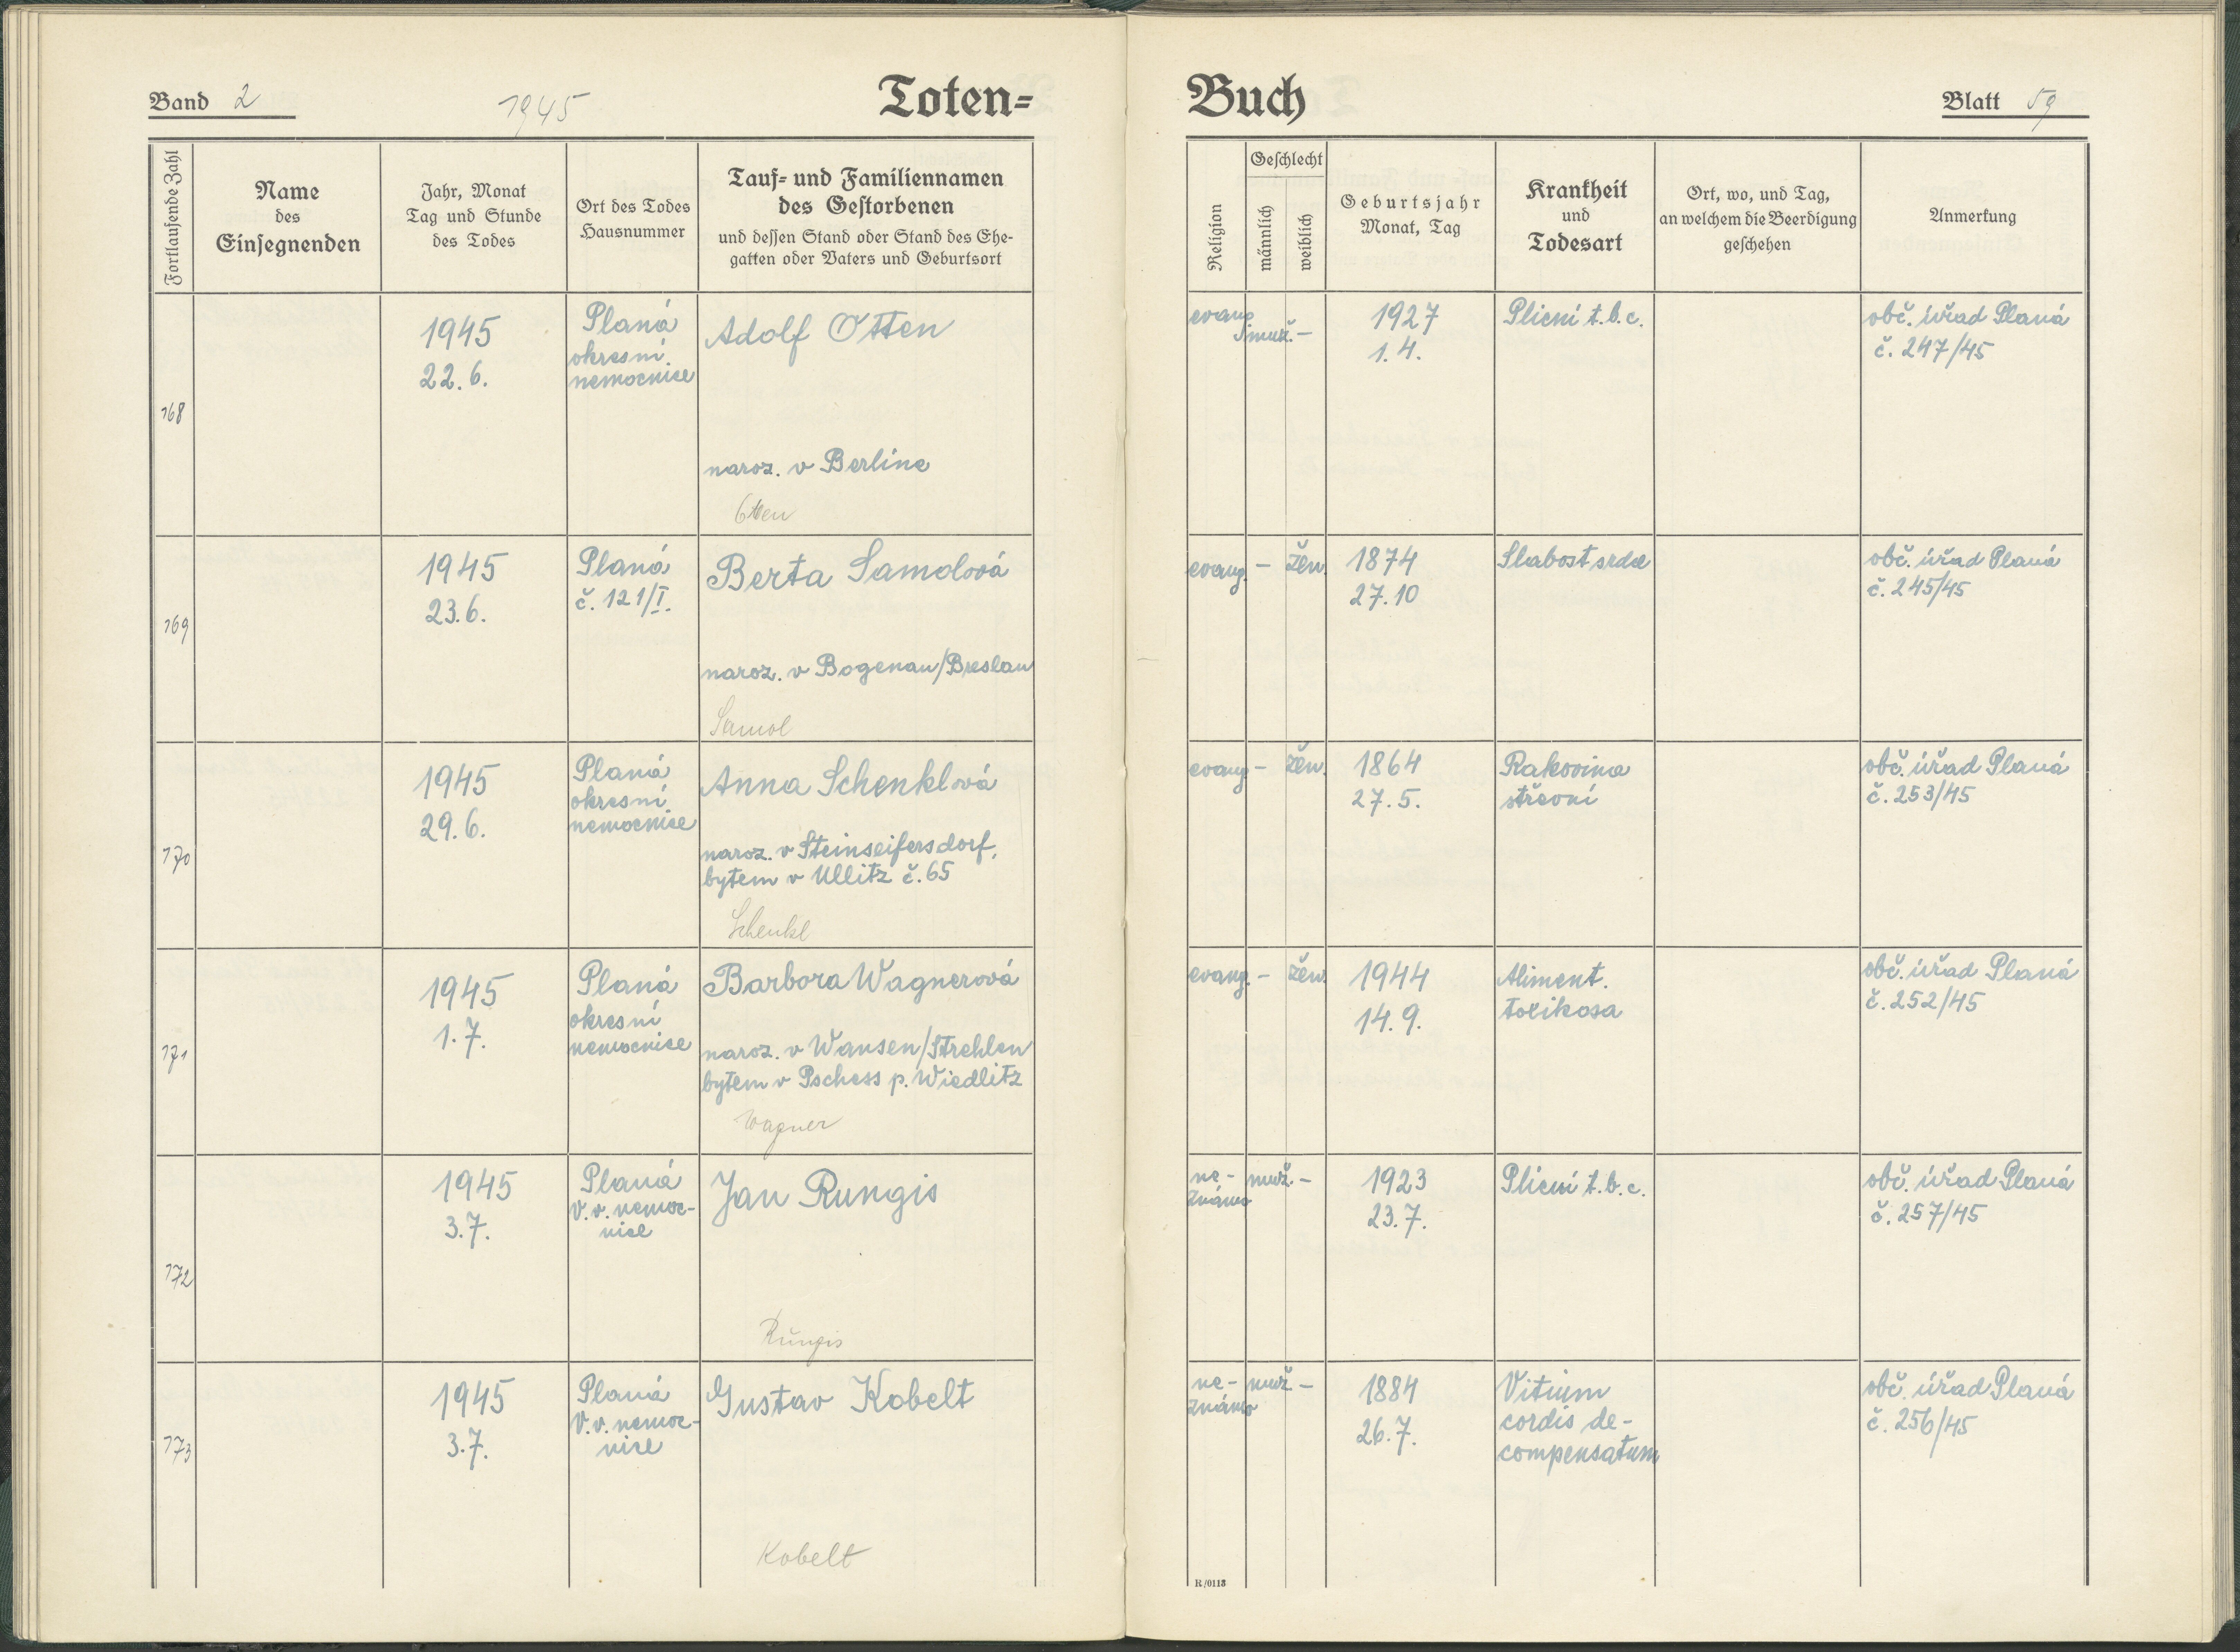 Band 2
1945
Toten-
Buch
Blatt 59
Fortlaufende Zahl
Name
des
Einsegnenden
Jahr, Monat
Tag und Stunde
des Todes
Ort des Todes
Hausnummer
Tauf- und Familiennamen
des Gestorbenen
und dessen Stand oder Stand des Ehe-
gatten oder Vaters und Geburtsort
Religion
Geschlecht
männlich
weiblich
Geburtsjahr
Monat, Tag
Krankheit
und
Todesart
Ort, wo, und Tag,
an welchem die Beerdigung
geschehen
Anmerkung
168
1945
22.6.
Planá
okresní
nemocnice
Adolf Otten
naroz. v Berlíně
Otten
evang.
muž. –
1927
1.4.
Plicní t.b.c.
obč. úřad Planá
č. 247/45
169
1945
23.6.
Planá
č. 121/I.
Berta Samolová
naroz. v Bogenau/Breslau
Samol
evang. – žen.
1874
27.10
Slabost srdce
obč. úřad Planá
č. 245/45
170
1945
29.6.
Planá
okresní
nemocnice
Anna Schenklová
naroz. v Steinseifersdorf,
bytem v Ullitz č. 65
Schenkl
evang – žen.
1864
27.5.
Rakovina
střevní
obč. úřad Planá
č. 253/45
171
1945
1.7.
Planá
okresní
nemocnice
Barbora Wagnerová
naroz. v Wansen/Strehlen
bytem v Pschess p. Wiedlitz
Wagner
evang. – žen.
1944
14.9.
Aliment.
toxikosa
obč. úřad Planá
č. 252/45
172
1945
3.7.
Planá
V.v. nemoc-
nice
Jan Rungis
Rungis
ne-
známo
muž. –
1923
23.7.
Plicní t.b.c.
obč. úřad Planá
č. 257/45
173
1945
3.7.
Planá
V.v. nemoc-
nice
Gustav Kobelt
Kobelt
ne-
známo
muž. –
1884
26.7.
Vitium
cordis de-
compensatum
obč. úřad Planá
č. 256/45
R/0113